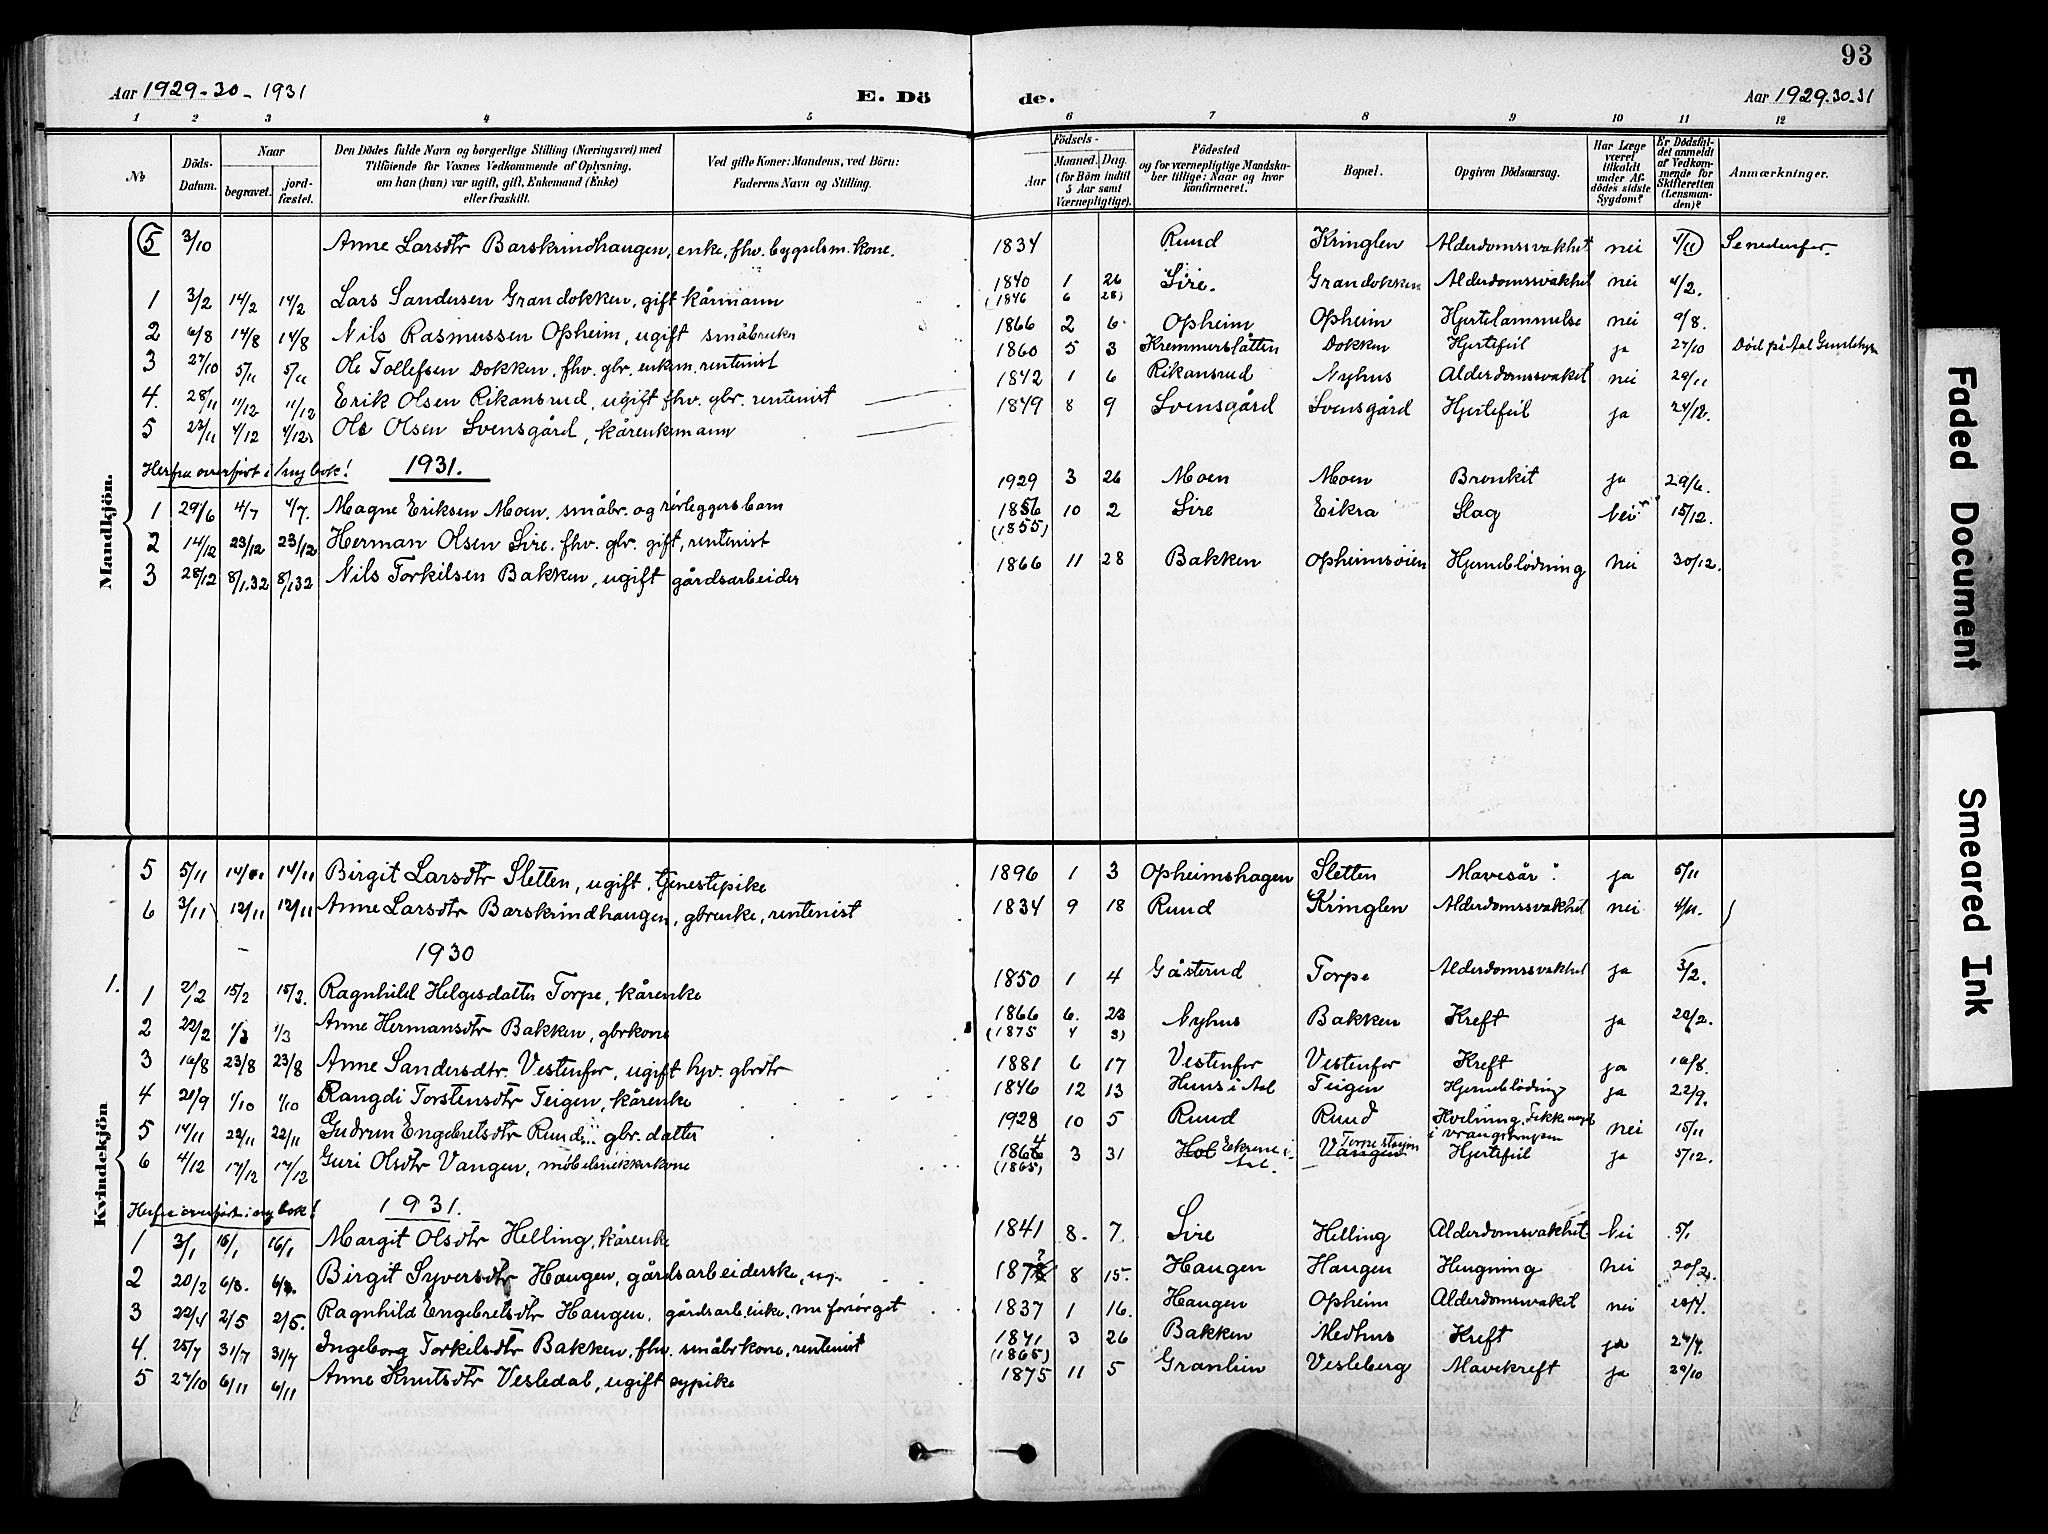 93
Aar 1929-30-1931
E. Dö
de.
Aar 1929-30-31
1 2 3 4 5 6 7 8 9 10 11 12
No
Döds-Datum.
Naar
begravet.
jord-fæstet.
Den Dödes fulde Navn og borgerlige Stilling (Næringsvei) med
Tilföiende for Voxnes Vedkommende af Oplysning,
om han (hun) var ugift, gift, Enkemand (Enke)
eller fraskilt.
Ved gifte Koner: Mandens, ved Börn:
Faderens Navn og Stilling.
Födsels-
Aar
Maaned. Dag.
(for Börn indtil
5 Aar samt
Værnepligtige).
Födested
og for værnepligtige Mandska-
ber tillige: Naar og hvor
konfirmeret.
Bopæl.
Opgiven Dödsaarsag.
Har Læge
været
tilkaldt
under Af-
dödes sidste
Sygdom?
Er Dödsfal-
det anmeldt
af Vedkom-
mende for
Skifteretten
(Lensman-
den)?
Anmærkninger.
Mandkjön.
5 3/10 Anne Larsdtr Barskrindhaugen, enke, fhv. bygselsm. kone. 1834 Ruud Kringlen Alderdomssvakhet nei 4/11 Se nedenfor.
1 3/2 14/2 14/2 Lars Sandersen Grandokken, gift kårmann 1840 1 26 Sire. Grandokken Alderdomssvakhet nei 4/2.
(1846 6 28)
2 6/8 14/8 14/8 Nils Rasmussen Opheim, ugift småbruker 1866 2 6 Opheim Opheim Hjertelammelse nei 9/8.
3 27/10 5/11 5/11 Ole Tollefsen Dokken, fhv. gbr. enkem. rentenist 1860 5 3 Kremmerslåtten Dokken Hjertefeil ja 27/10 Död på Aal
4. 28/11 11/12 11/12 Erik Olsen Rikansrud, ugift fhv. gbr. rentenist 1842 1 6 Rikansrud Nyhus Alderdomssvaket nei 29/11
5 23/11 4/12 4/12 Ole Olsen Svensgård, kårenkemann 1849 8 9 Svensgård Svensgård Hjertefeil ja 24/12.
Herfra overført i ny bok! 1931.
1 29/6 4/7 4/7. Magne Eriksen Moen, småbr. og rörleggers barn 1929 3 26 Moen Moen Bronkit ja 29/6.
2 14/12 23/12 23/12 Herman Olsen Sire, fhv. gbr. gift, rentenist 1856 10 2 Sire Eikra Slag Nei 15/12.
(1855)
3 28/12 8/1.32 8/1 32 Nils Torkilsen Bakken, ugift gårdsarbeider 1866 11 28 Bakken Opheimsöien Hjerneblödning nei 30/12.
Kvindekjön
5 5/11 14/11 14/11 Birgit Larsdtr Sletten, ugift, tjenestepike 1896 1 3 Opheimshagen Sletten Mavesår ja 5/11
6 3/11 12/11 12/11 Anne Larsdtr Barskrindhaugen, gbrenke, rentenist 1834 9 18 Ruud Kringlen Alderdomssvakhet nei 4/11.
1930
1. 1 2/2 15/2 15/2. Ragnhild Helgesdatter Torpe, kårenke 1850 1 4 Gåsterud Torpe Alderdomssvakhet ja 3/2.
2 22/2 1/3 1/3 Anne Hermansdtr Bakken, gbrkone 1866 6. 23 Nyhus Bakken Kreft ja 22/2.
(1875 4 3)
3 16/8 23/8 23/8 Anne Sandersdtr. Vestenfor, ugift hjv. gbrdtr 1881 6 17 Vestenfor Vestenfor Kreft ja 16/8.
4 21/9 1/10 1/10 Rangdi Torstensdtr Teigen, kårenke 1846 12 13 Huus i Aal Teigen Hjerneblödning ja 22/9.
5 14/11 22/11 22/11 Gudrun Engebretsdtr Ruud, gbr. datter 1928 10 5 Ruud Ruud Kvelning. Fikk i vrangstrupen nei 15/11
6 4/12 17/12 17/12 Guri Olsdtr Vangen, möbelsnekkerkone 1864 3 31 Hol Ekrene i Aal. Vangen Torpe stasjon Hjertefeil ja 5/12.
(1865)
Herfra overført i ny bok! 1931.
1 3/1 16/1 16/1 Margit Olsdtr Helling, kårenke 1841 8. 7. Sire Helling Alderdomsvakhet Nei 5/1
2 20/2 6/3. 6/3. Birgit Syversdtr Haugen, gårdsarbeiderske, ug. 1872 8 15. Haugen Haugen Hengning nei 20/2.
3 22/4 2/5 2/5. Ragnhild Engebretsdtr Haugen, gårdsarb.enke, nu forsörget 1837 1 16. Haugen Opheim Alderdomsvaket nei 23/4.
4. 25/7 31/7 31/7 Ingeborg Torkilsdtr Bakken, fhv. småbrkone, rentenist 1841 3 26 Bakken Medhus Kreft ja 27/7.
(1865)
5 27/10 6/11 6/11 Anne Knutsdtr Vesledal, ugift sypike 1875 11 5 Granlien Vesleberg Mavekreft ja 29/10
Faded Document
Smeared Ink